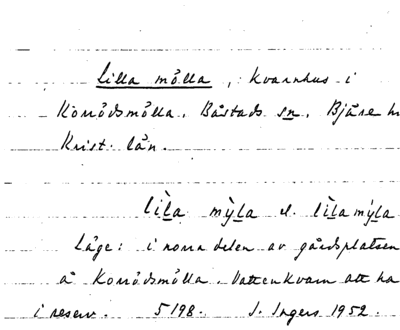 Lilla mölla, kvarnhus i
Korrödsmölla, Båstads sn, Bjäre h
Krist. län.
lìl̲a mỳl̲a el. lìl̲amýl̲a
Läge: i norra delen av gårdsplatsen
å Korrödsmölla. Vattenkvarn att ha
i reserv. 5198. I. Ingers 1952.